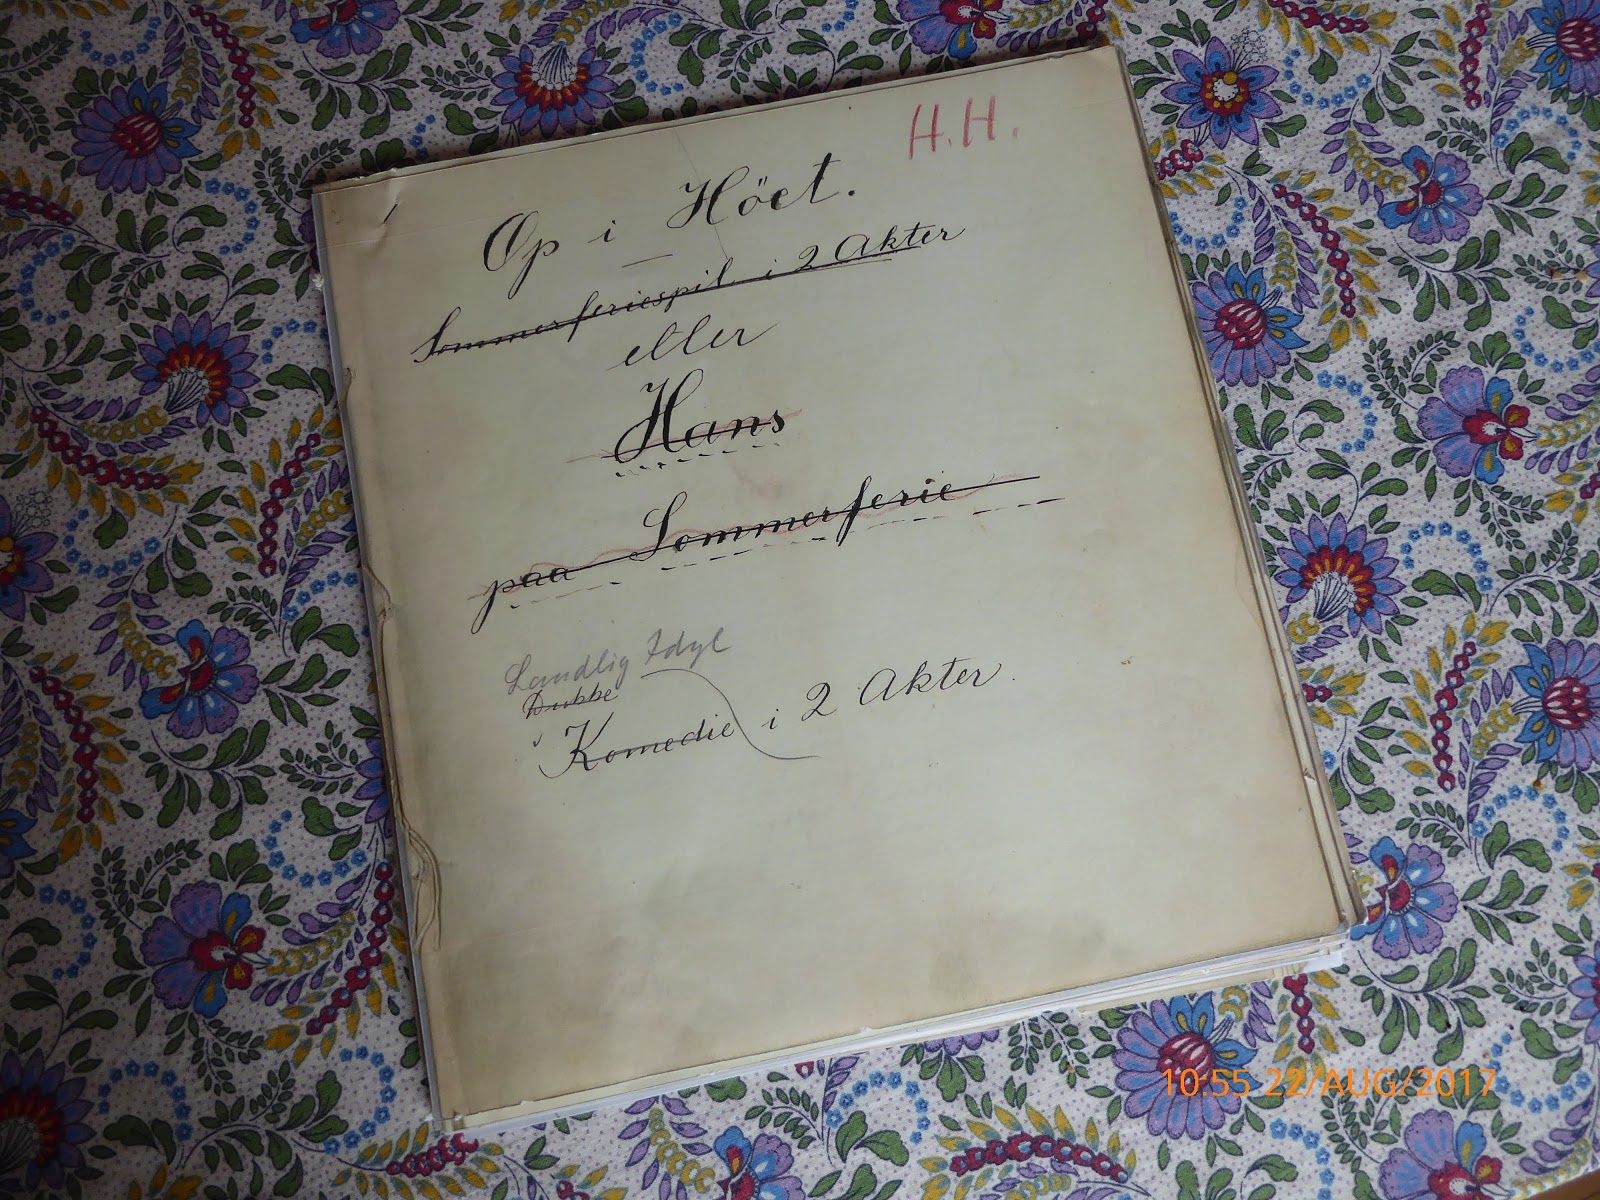 H.H.
Op i Höet.
Sommerferiespil i 2 Akter
eller
Hans
paa Sommerferie
Landlig Idyl
Komedie i 2 Akter.
10:55 22/AUG/2017